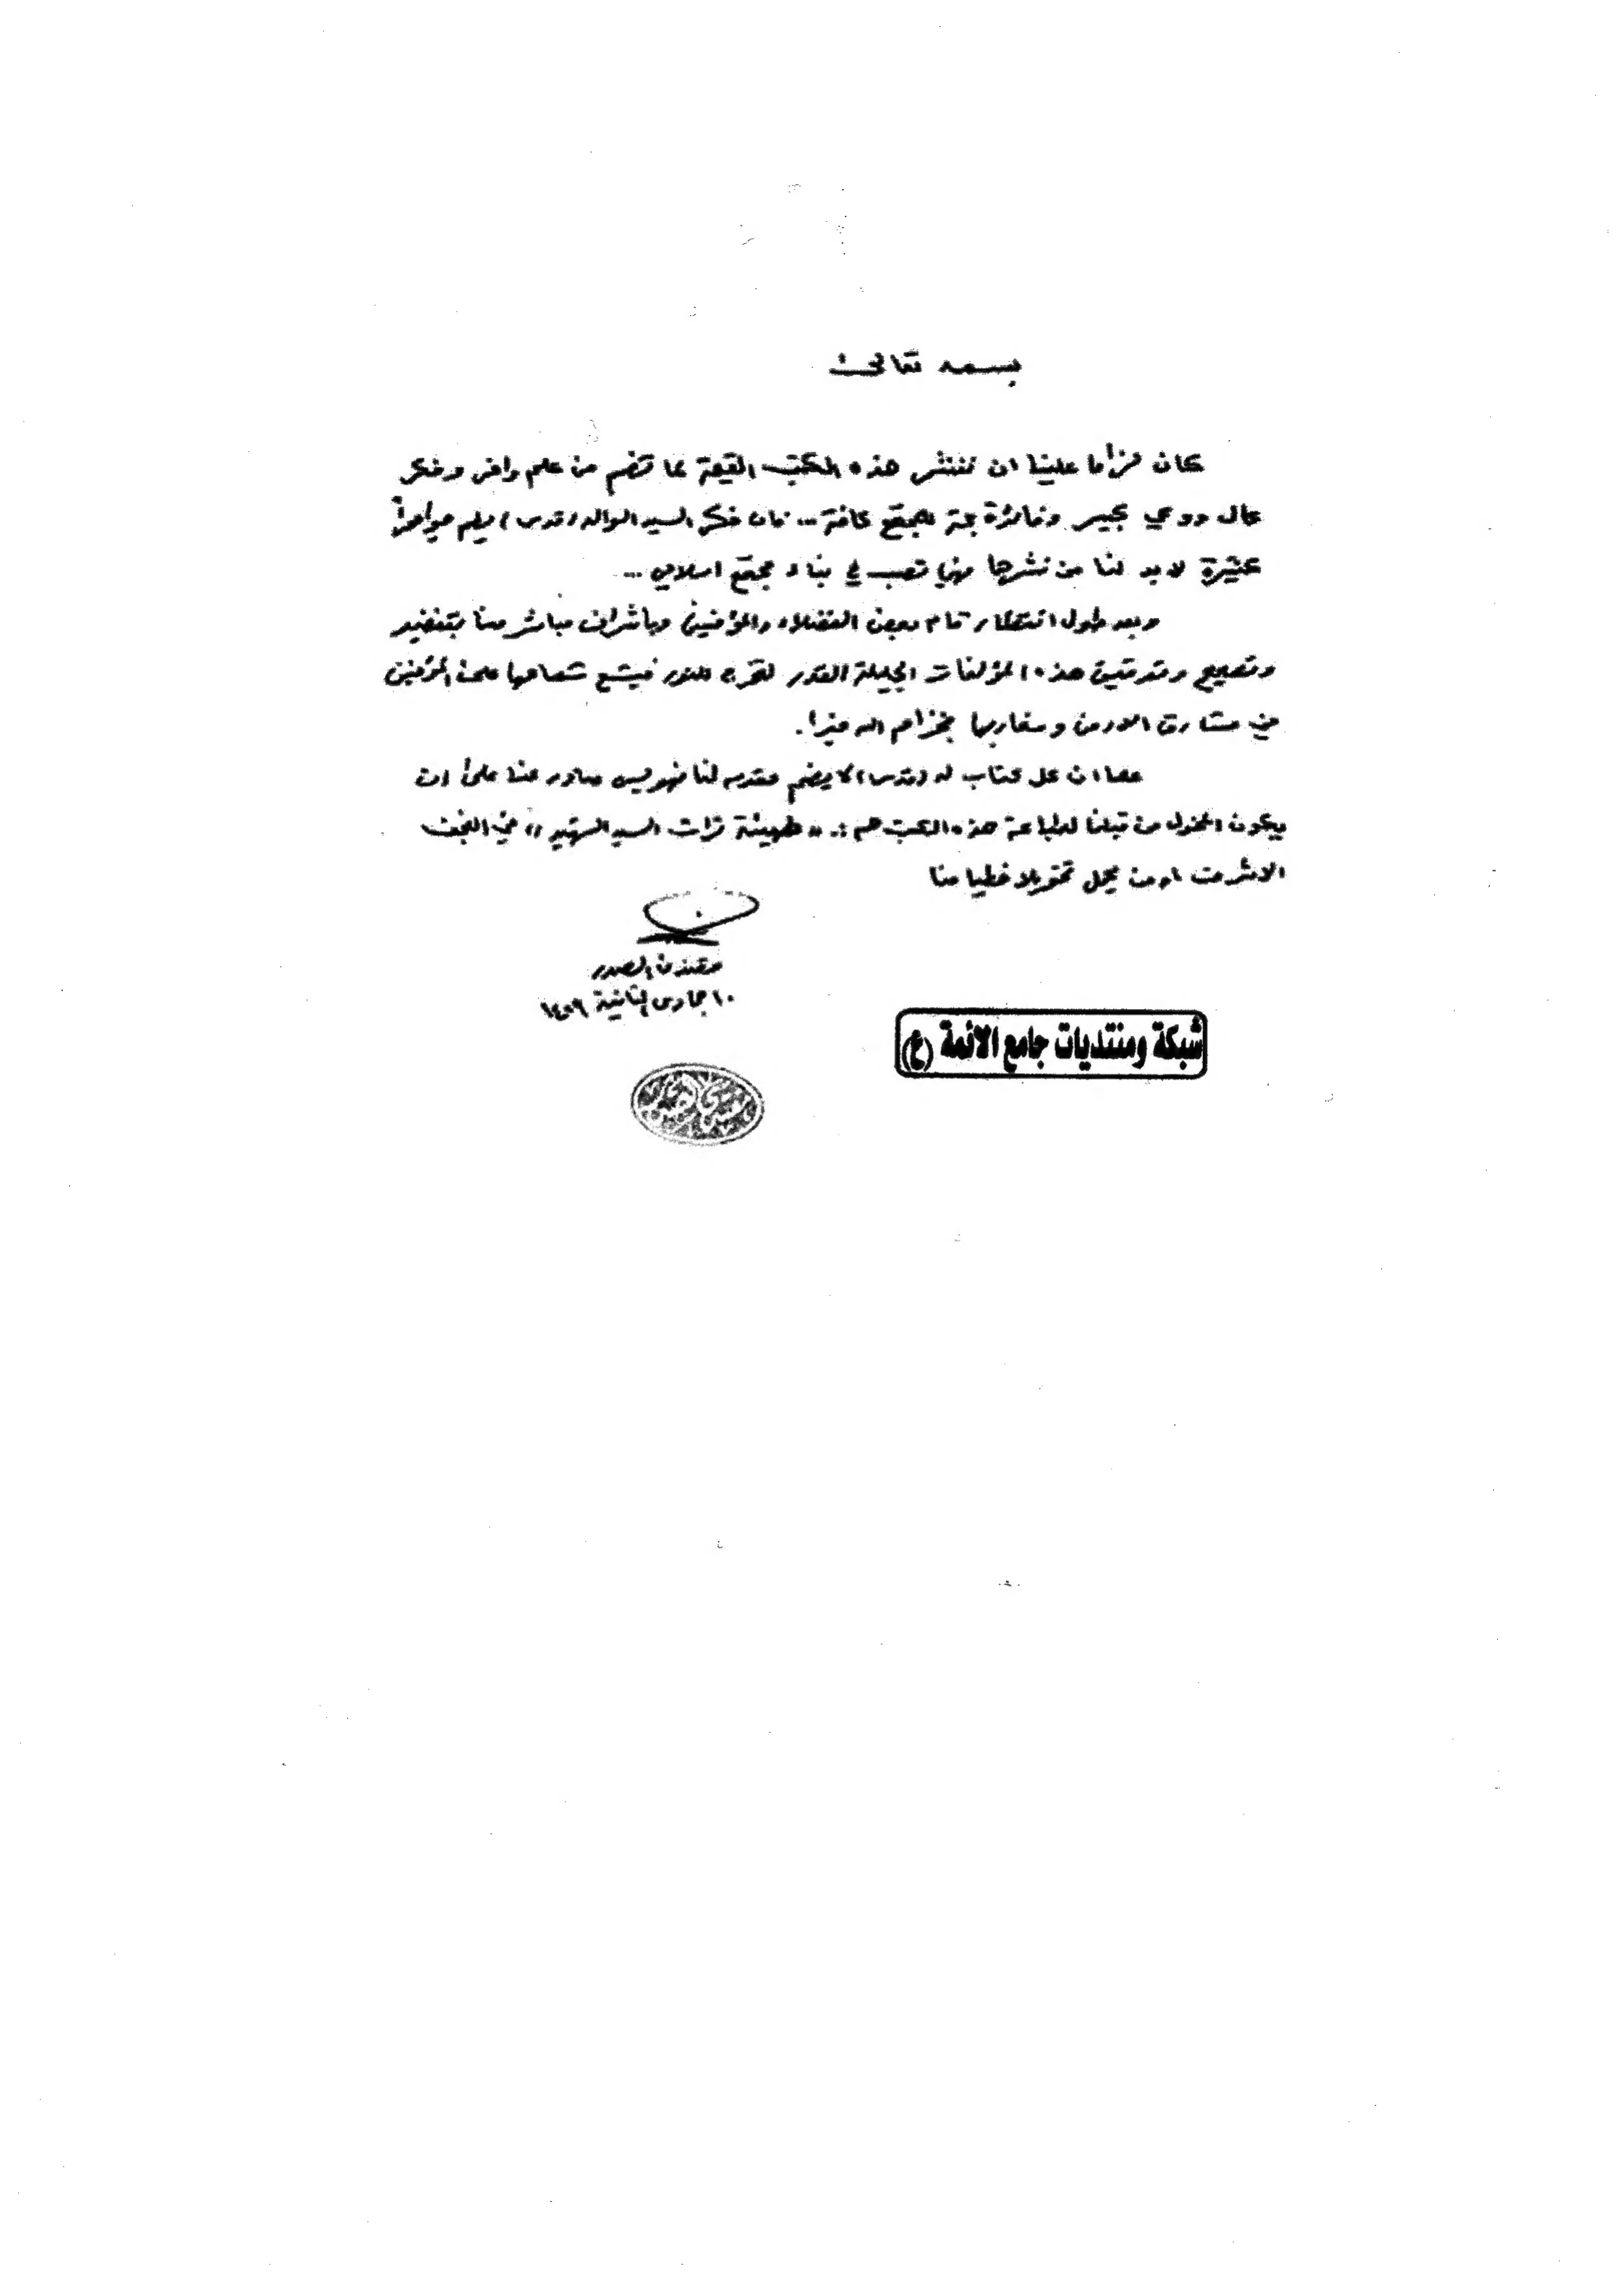 بسمه تعالى
كان لزاما علينا ان ننشر هذه الكتب القيمة لما تضم من علم وافر وفكر
عال ووعي كبير وفائدة جمة للمجتمع كافة ... فان فكر السيد الوالد (قدس)
كثيرة لا بد لنا من نشرها فهي تصب في بناء مجتمع اسلامي ...
وبعد طول انتظار قام بعض الفضلاء والمؤمنين وباشراف مباشر منا بتنضيد
وتصحيح وتدقيق هذه المؤلفات الجليلة القدر لتخرج للنور فيشع شعاعها على المؤمنين
في مشارق الارض ومغاربها فجزاهم الله خيرا.
كما ان كل كتاب له (قدس) لا يضم مقدمه لنا فهو ليس صادر عنا على ان
يكون المخول من قبلنا لطباعة هذه الكتب هم :. «هيئة تراث السيد الشهيد» في النجف
الاشرف او من يحمل تخويلا خطيا منا
مقتدى الصدر
١٠ جمادى الثانية ١٤٢٩
شبكة ومنتديات جامع الائمة (ع)